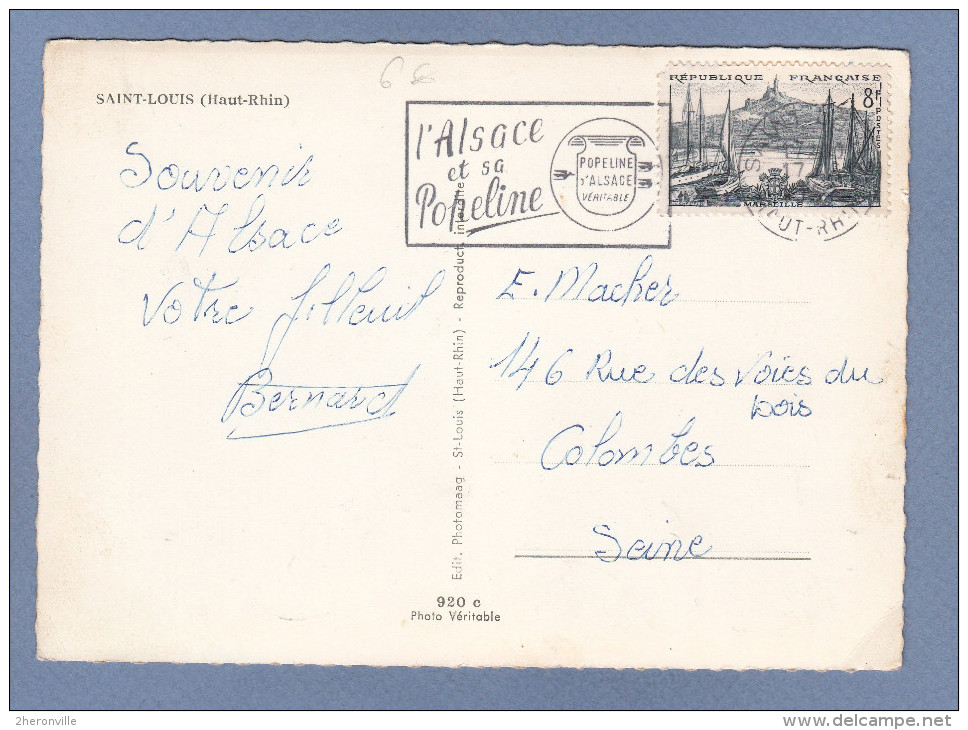 6 €
SAINT-LOUIS (Haut-Rhin)
Souvenir
d'Alsace
Votre filleuil
Bernard
l'Alsace
et sa
Popeline
POPELINE
D'ALSACE
VÉRITABLE
RÉPUBLIQUE FRANÇAISE
8F
POSTES
MARSEILLE
17
HAUT-RHIN
E. Macher
146 Rue des Voies du
bois
Colombes
Seine
Edit. Photomaag - St-Louis (Haut-Rhin) - Reproduct. interdite
920 c
Photo Véritable
2heronville
delcampe.net